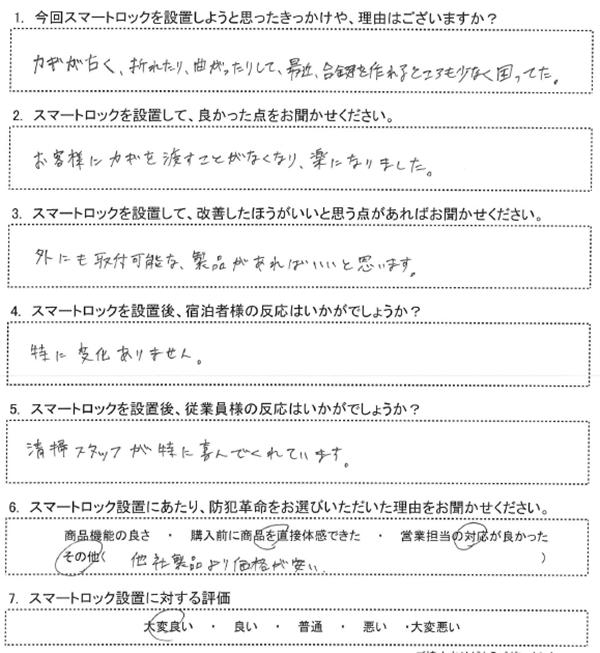 1. 今回スマートロックを設置しようと思ったきっかけや、理由はございますか?
カギが古く、折れたり、曲がったりして、最近、合鍵を作れるところも少なく困ってた。
2. スマートロックを設置して、良かった点をお聞かせください。
お客様にカギを渡すことがなくなり、楽になりました。
3. スマートロックを設置して、改善したほうがいいと思う点があればお聞かせください。
外にも取付可能な、製品があればいいと思います。
4. スマートロックを設置後、宿泊者様の反応はいかがでしょうか?
特に変化ありません。
5. スマートロックを設置後、従業員様の反応はいかがでしょうか?
清掃スタッフが特に喜んでくれています。
6. スマートロック設置にあたり、防犯革命をお選びいただいた理由をお聞かせください。
商品機能の良さ ・ 購入前に商品を直接体感できた ・ 営業担当の対応が良かった
その他( 他社製品より価格が安い. )
7. スマートロック設置に対する評価
大変良い ・ 良い ・ 普通 ・ 悪い ・大変悪い